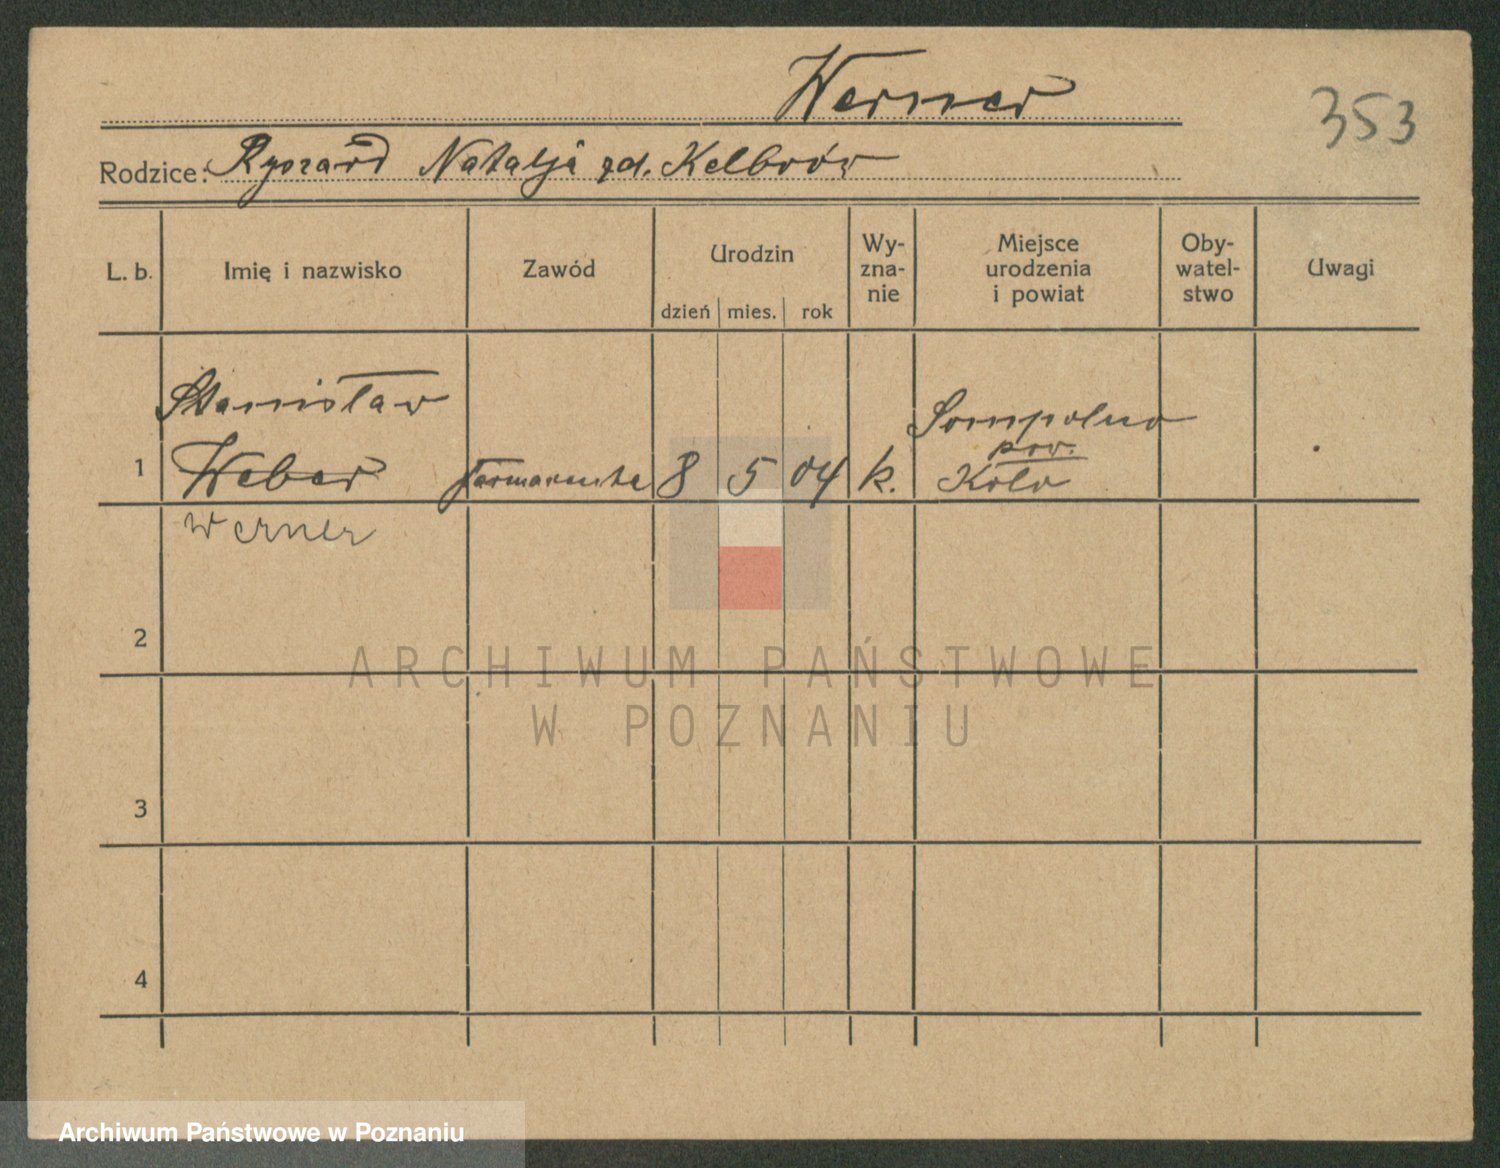 Werner
353
Rodzice: Ryszard Natalja zd. Kelbrów
L. b.
Imię i nazwisko
Zawód
Urodzin
dzień
mies.
rok
Wy-
zna-
nie
Miejsce
urodzenia
i powiat
Oby-
watel-
stwo
Uwagi
Stanisław
Sompolno
pow.
1 Weber 8 5 04 k. Koło
Werner
2
ARCHIWUM PAŃSTWOWE
W POZNANIU
3
4
Archiwum Państwowe w Poznaniu